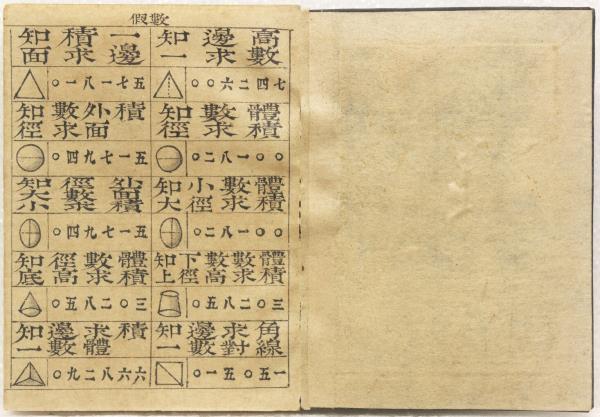 假數
知面積求一邊
○一八一七五
知一邊求高數
○○六二四七
知徑數求外面積
○四九七一五
知徑數求體積
○二八一○○
知大小徑數求外面積
○四九七一五
知大小徑數求體積
○二八一○○
知底徑高數求體積
○五八二○三
知上下徑數高數求體積
○五八二○三
知一邊數求體積
○九二八六六
知一邊數求對角線
○一五○五一